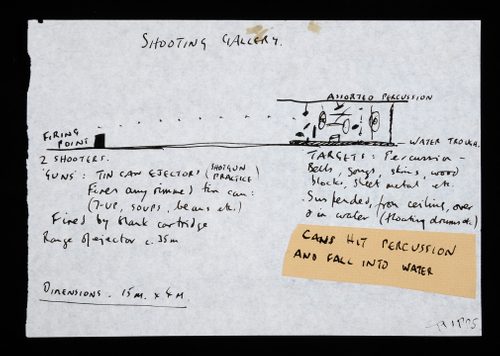 SHOOTING GALLERY.
ASSORTED PERCUSSION
FIRING
POINT
WATER TROUGH.
2 SHOOTERS.
'GUNS': TIN CAN EJECTORS (SHOTGUN
PRACTICE)
Fires any rimmed tin can:
(7-UP, SOUPS, beans etc.)
Fired by blank cartridge
Range of ejector c. 35m
DIMENSIONS. 15 M. x 4 M.
TARGETS: Percussion -
Bells, gongs, skins, wood
blocks, sheet metal etc.
Suspended, from ceiling, over
& in water (floating drums etc.)
CANS HIT PERCUSSION
AND FALL INTO WATER